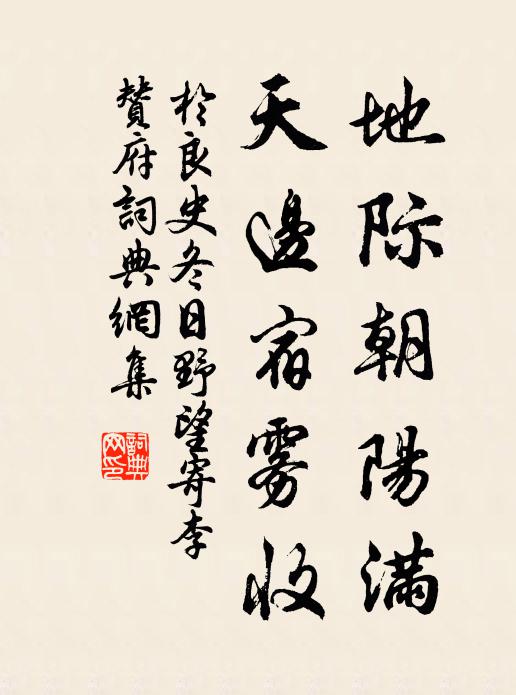 地际朝陽滿
天邊宿雾收
於良史冬日野望寄李
贊府詞典網集
詞典
网印